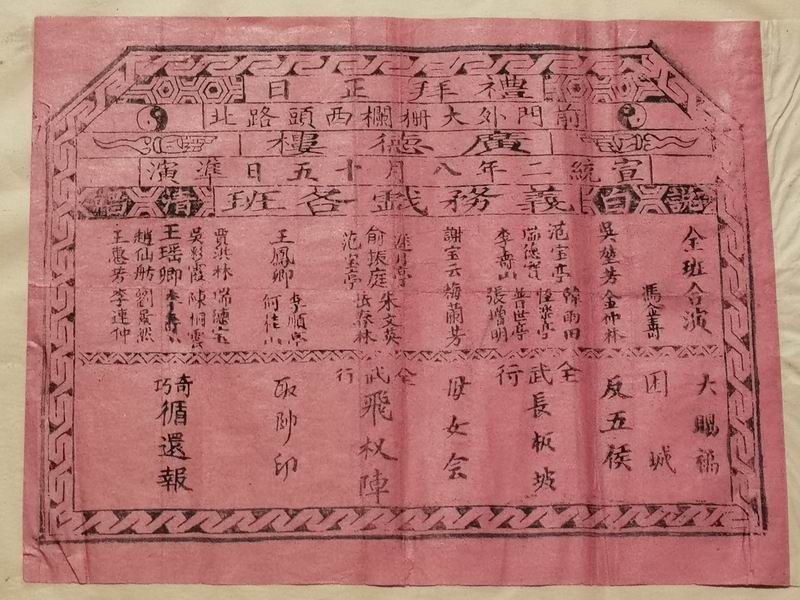 禮拜正日
前門外大柵欄西頭路北
廣德樓
宣統二年八月十五日準演
請白義務戲各班清
全班合演
大賜福
馮金壽
困城
吳堃芳
金仲林
反五侯
范宝亭 韓雨田
瑞德寶
李壽山 普世亭
張增明
全武行
長板坡
謝宝云 梅蘭芳
母女会
遲月亭 朱文英
俞振庭
范宝亭
全武行
飛杈陣
王鳳卿
李順亭
何佳山
取帥印
賈洪林 瑞德宝
吳彩霞 陳桐雲
王瑶卿 李壽山
趙仙舫 劉景然
王蕙芳 李連仲
奇巧
循還報